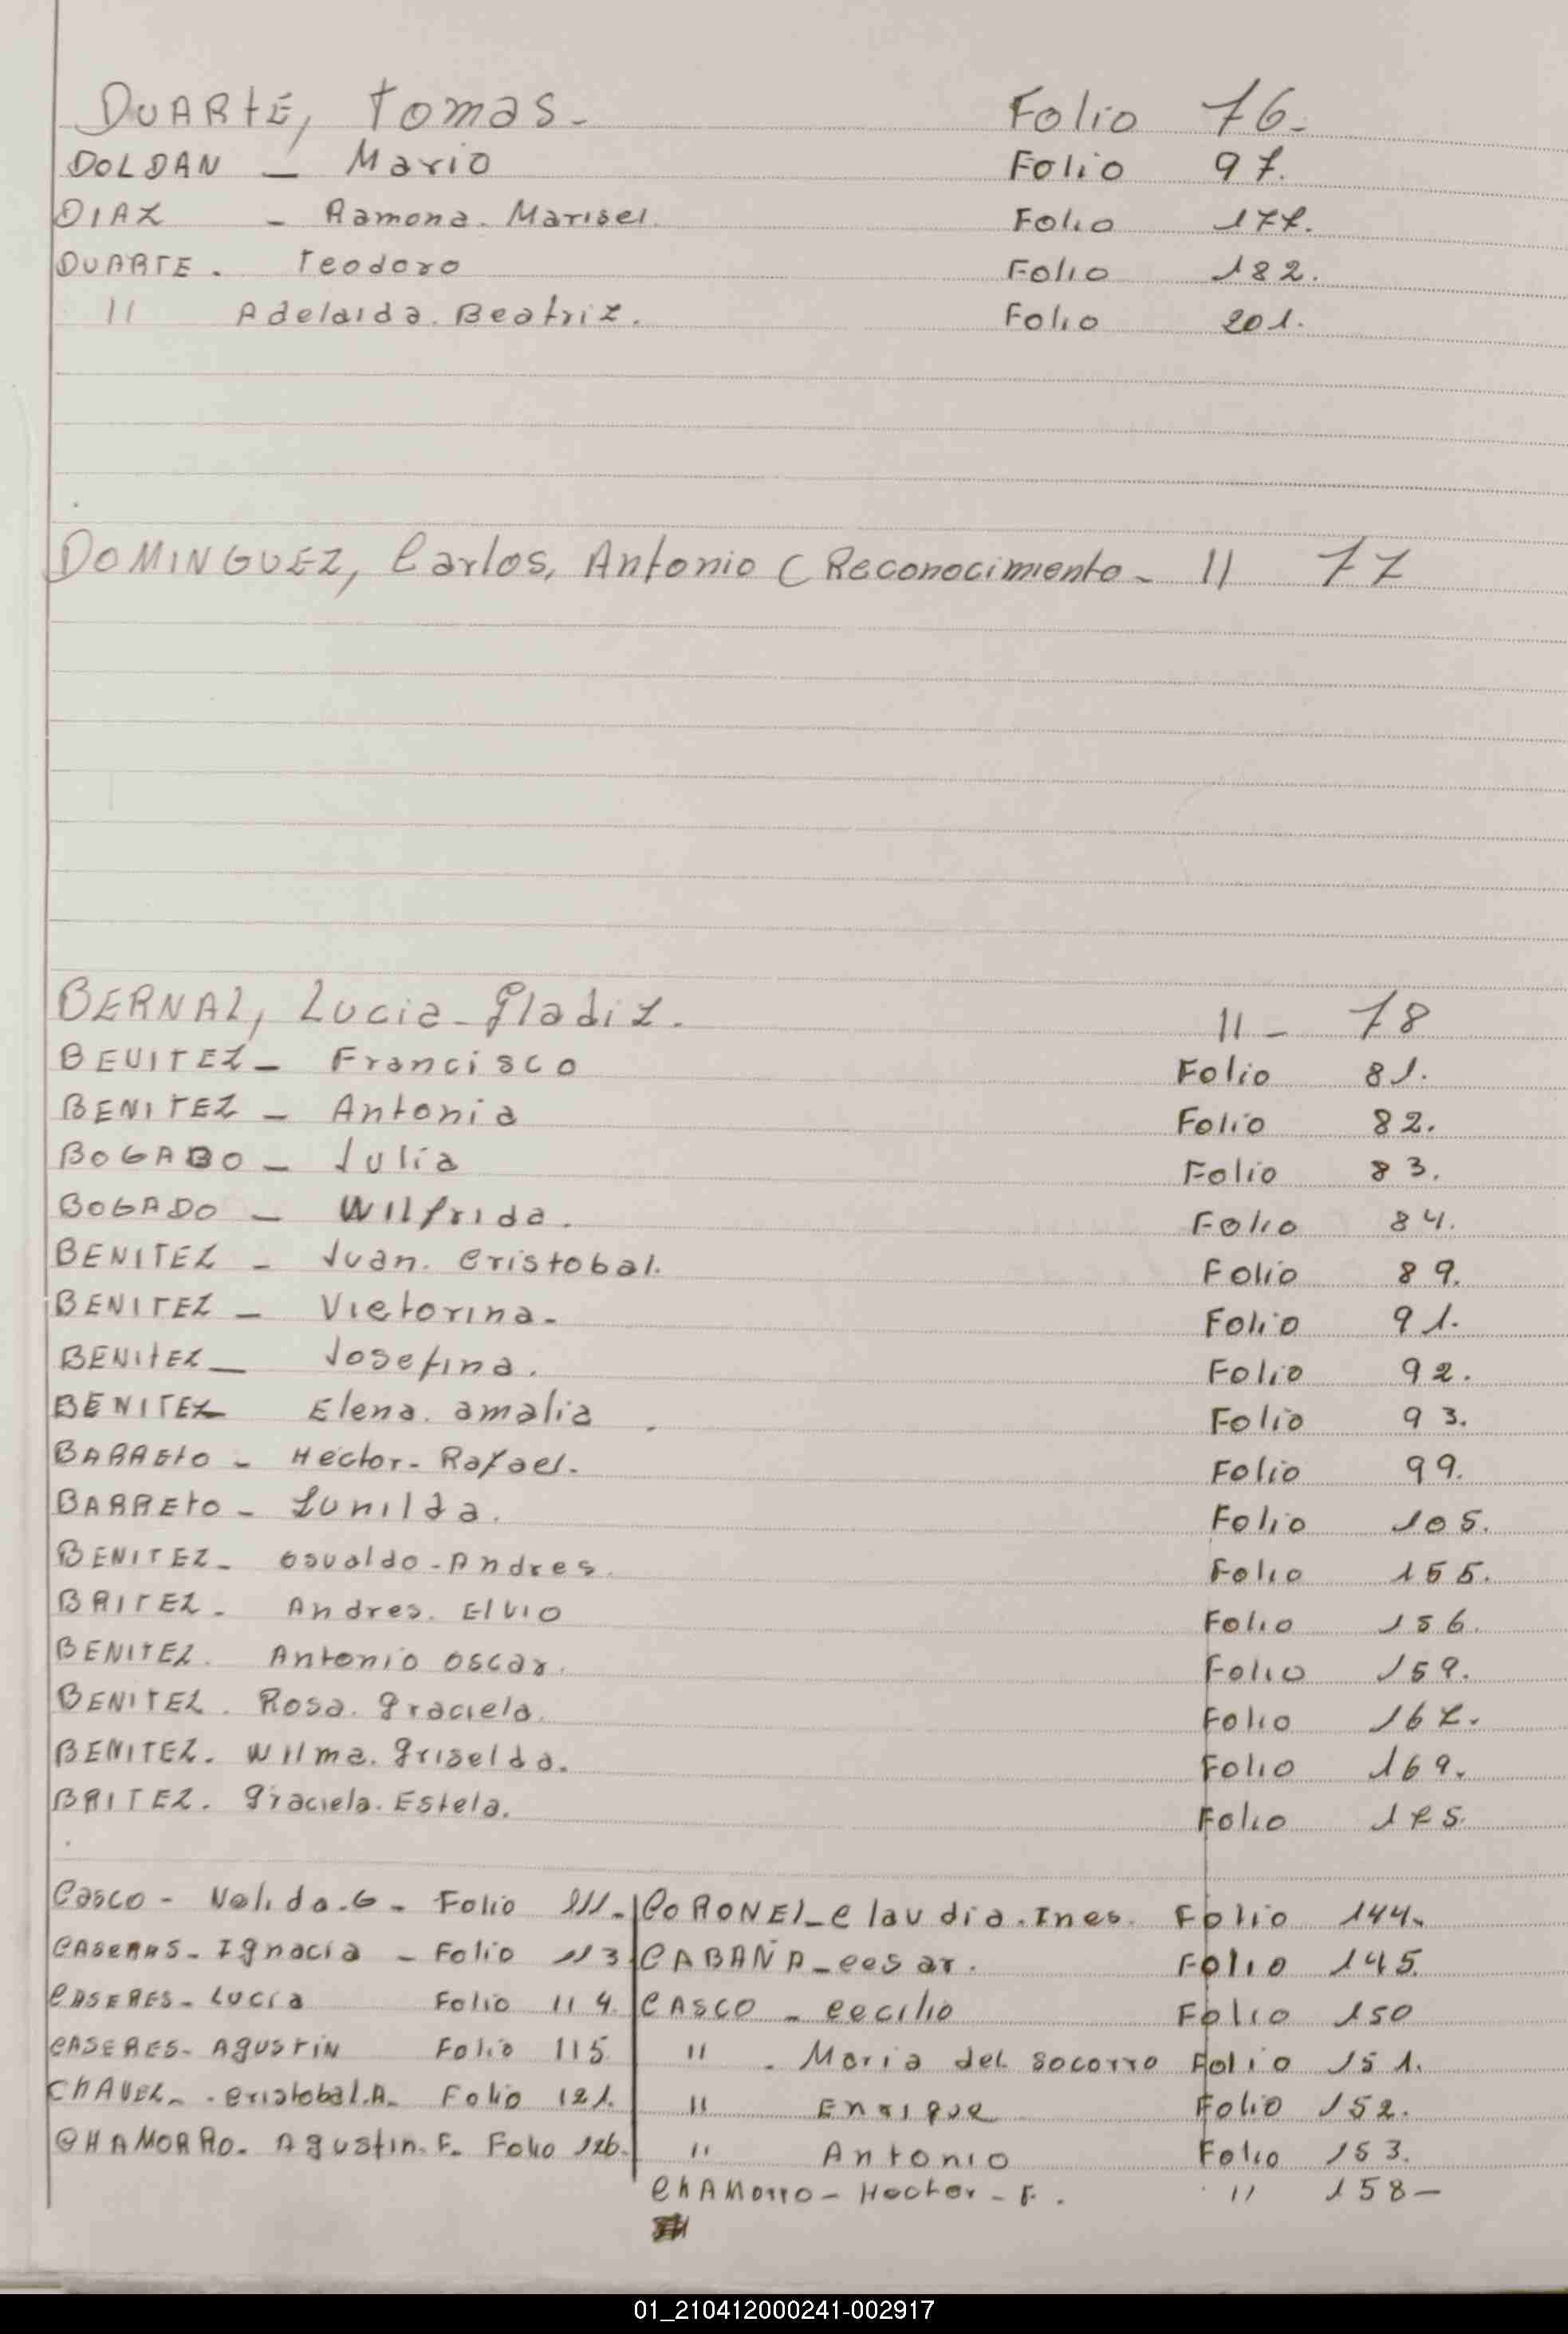 DUARTE, Tomas- Folio 76-
DOLDAN - Mario Folio 97.
DIAZ - Ramona. Marisel. Folio 177.
DUARTE. Teodoro Folio 182.
" Adelaida. Beatriz. Folio 201.
DOMINGUEZ, Carlos, Antonio (Reconocimiento- " 77
BERNAL, Lucia-Gladiz. " - 78
BENITEZ- Francisco Folio 81.
BENITEZ - Antonia Folio 82.
BOGADO - Julia Folio 83.
BOGADO - Wilfrida. Folio 84.
BENITEZ - Juan. Cristobal. Folio 89.
BENITEZ - Victorina- Folio 91.
BENITEZ - Josefina. Folio 92.
BENITEZ Elena. amalia. Folio 93.
BARREtO - Hector-Rafael- Folio 99.
BARREtO - Zunilda. Folio 105.
BENITEZ- Osvaldo-Andres. Folio 155.
BRITEZ. Andres. Elvio Folio 156.
BENITEZ. Antonio Oscar. Folio 159.
BENITEZ. Rosa. Graciela. Folio 167.
BENITEZ. Wilma. Griselda. Folio 169.
BRITEZ. Graciela. Estela. Folio 175.
Casco - Nelida.G- Folio 111.
CASERES- Ignacia - Folio 113
CASERES- Lucia Folio 114.
CASERES- AGUSTIN Folio 115
CHAVEZ- Cristobal.A- Folio 121.
CHAMORRO- Agustin. F. Folio 126.
CORONEL-Claudia. Ines. Folio 144.
CABAÑA-Cesar. Folio 145.
CASCO - Cecilio Folio 150
" . Maria del Socorro Folio 151.
" Enrique Folio 152.
" Antonio Folio 153.
CHAMorro - Hector-F. " 158-
01_210412000241-002917